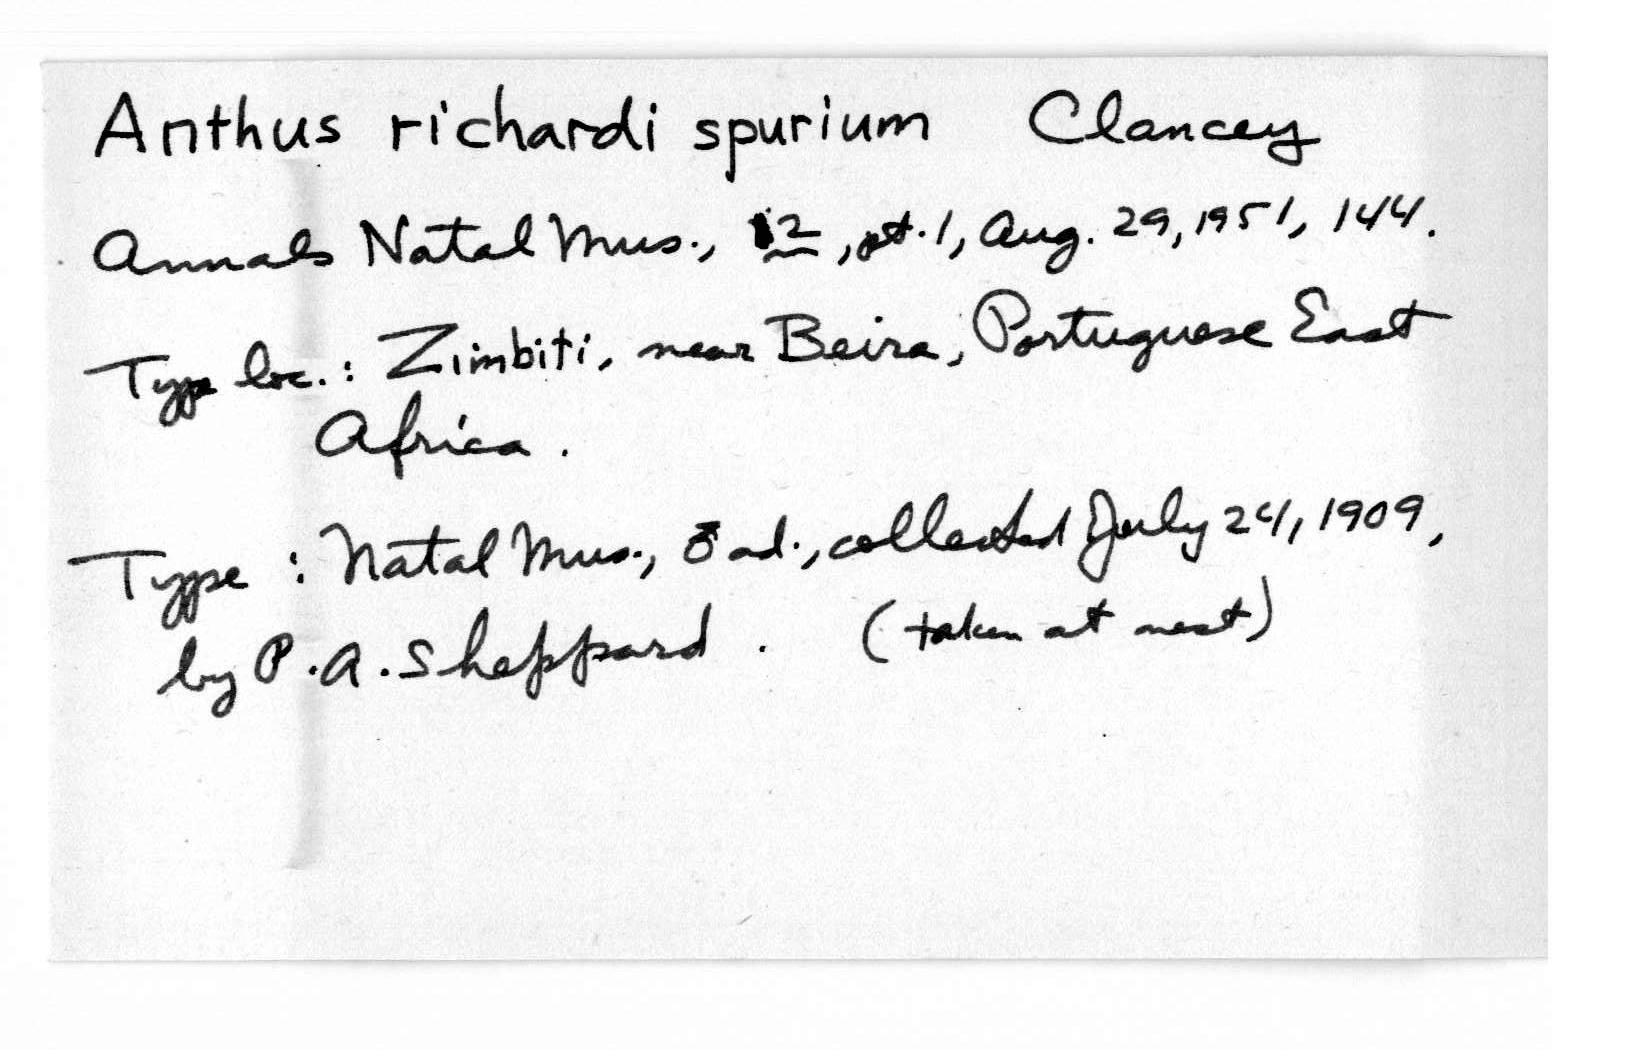 Anthus richardi spurium Clancey
Annals Natal Mus., 12, pt. 1, Aug. 29, 1951, 144.
Type loc.: Zimbiti, near Beira, Portuguese East
Africa.
Type: Natal Mus., ♂ ad., collected July 24, 1909,
by P.A. Sheppard. (taken at nest)